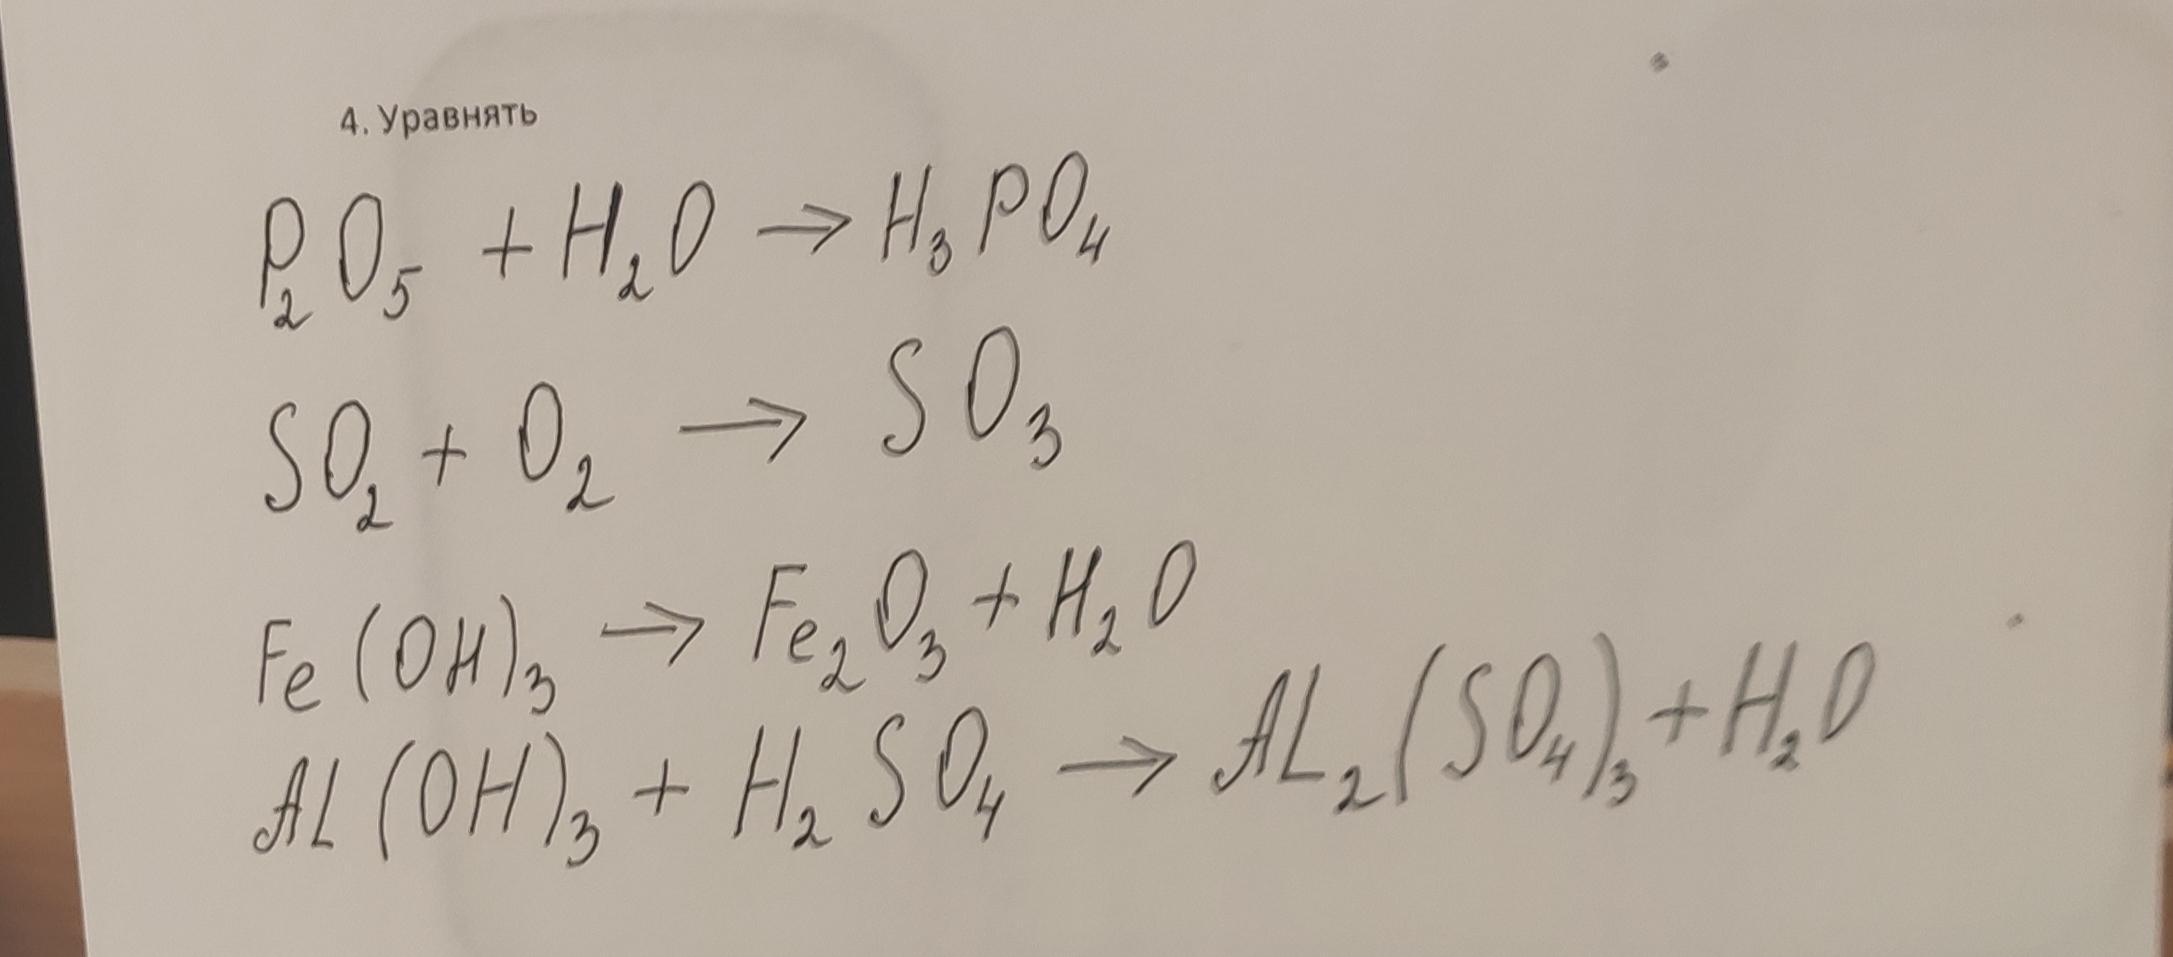 4. Уравнять
P₂O₅ + H₂O → H₃PO₄
SO₂ + O₂ → SO₃
Fe(OH)₃ → Fe₂O₃ + H₂O
AL(OH)₃ + H₂SO₄ → AL₂(SO₄)₃ + H₂O